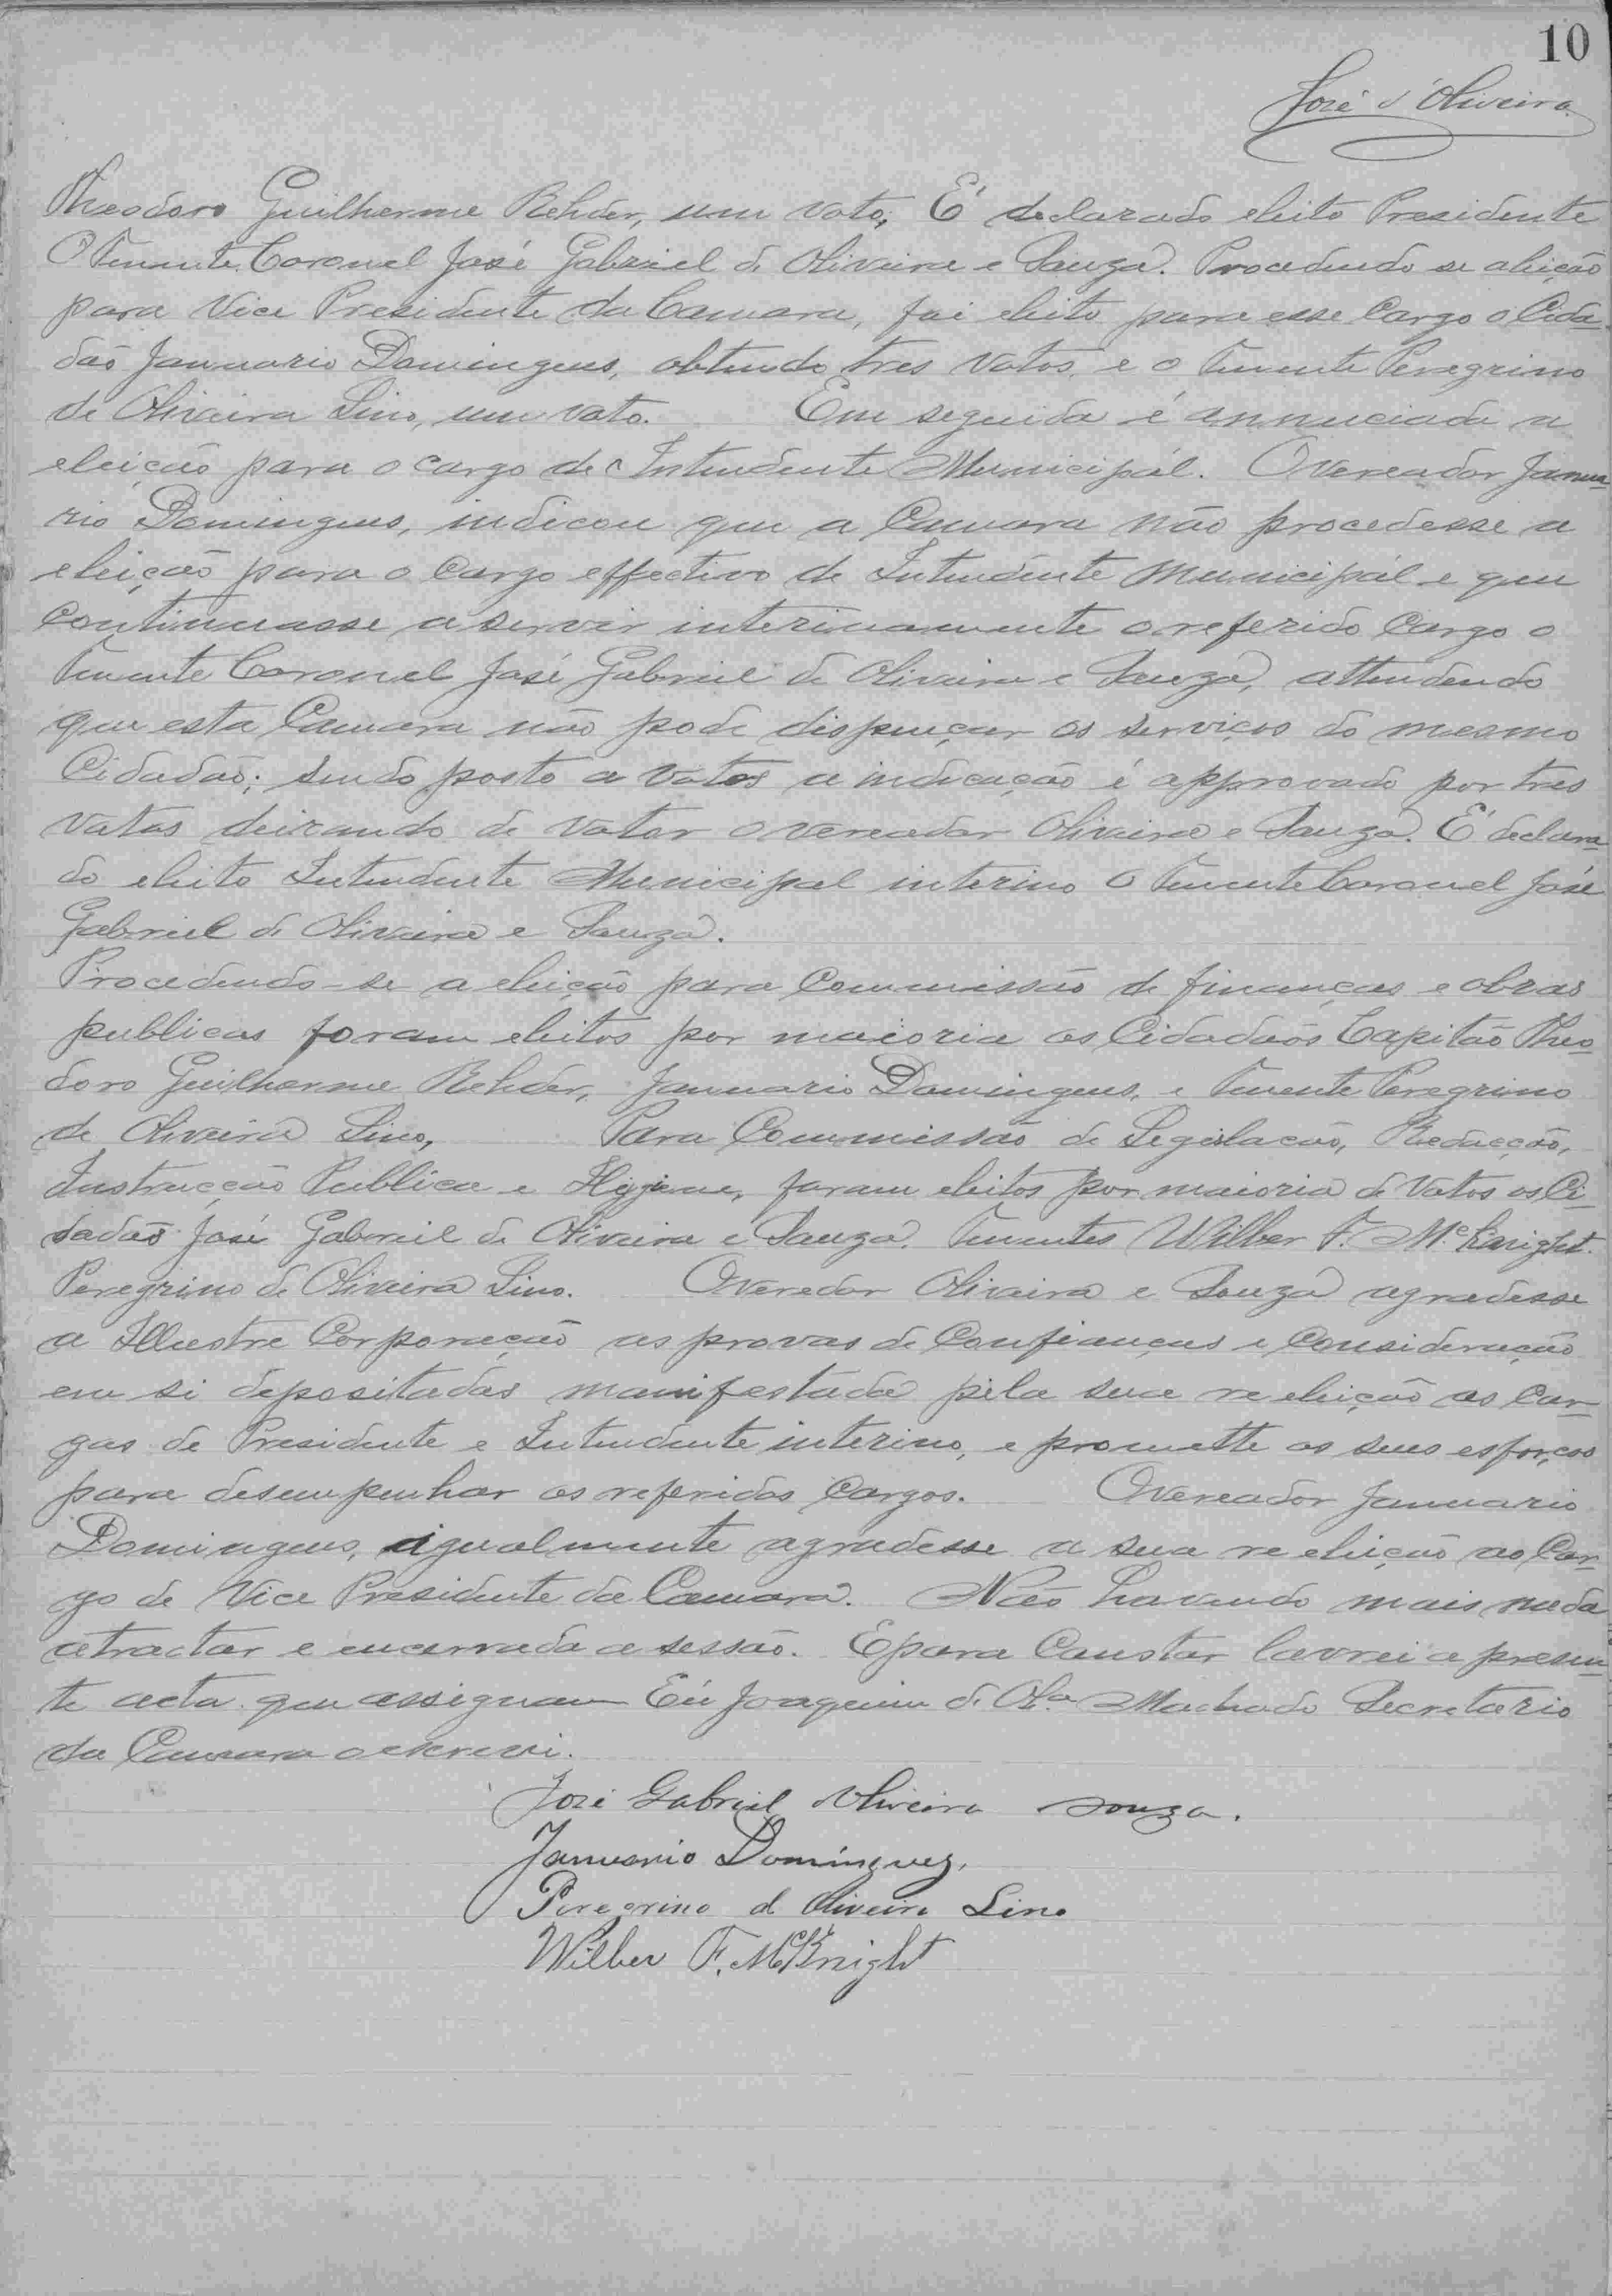 10
José d'Oliveira
Theodoro Guilherme Rehder, um voto, É declarado eleito Presidente
O Tenente Coronel José Gabriel de Oliveira e Souza. Procedendo se aleição
para Vice Presidente da Camara, foi eleito para esse Cargo o Cida
dão Januario Domingues, obtendo tres votos, e o Tenente Peregrino
de Oliveira Lino, um voto. Em seguida é annunciada a
eleição para o cargo de Intendente Municipál. O Vereador Janua
rio Domingues, indicou que a Camara não procedesse a
eleição para o Cargo effectivo de Intendente Municipál e que
continuasse a servir interinamente o referido Cargo o
Tenente Coronel José Gabriel de Oliveira e Souza, attendendo
que esta Camara não pode dispençar os serviços do mesmo
Cidadaõ; sendo posto a votos a indicação é approvado por tres
votos deixando de votar o vereador Oliveira e Souza. É declara
do eleito Intendente Municipal interino o Tenente Coronel José
Gabriel de Oliveira e Souza.
Procedendo-se a eleição para Commissão de finanças e obras
publicas foram eleitos por maioria os Cidadaõs Capitão Theo
doro Guilherme Rehder, Januario Domingues, e Tenente Peregrino
de Oliveira Lino, Para Commissão de Legislacão, Redacção,
Instrucção Publica e Hygiene, foram eleitos por maioria de votos os Ci
dadaõ José Gabriel de Oliveira e Souza. Tenentes Wilber F. Mc Knight.
Peregrino de Oliveira Lino. O Veredor Oliveira e Souza agradesse
a Illustre Corporação as provas de Confianças e Consideração
em si depositadas manifestada pela sua re eleição as Car
gos de Presidente e Intendente interino, e promette os seus esforços
para desempenhar os referidos Cargos. O Vereador Januario
Domingues, igualmente agradesse a sua re eleição ao Car
go de Vice Presidente da Camara. Não havendo mais nada
atractar e encerrada a sessão. E para Constar lavrei a presen
te acta que assignam Eu Joaquim de Olª Machado Secretario
da Camara o escrevi.
José Gabriel Oliveira Souza.
Januario Domingues,
Peregrino d Oliveira Lino
Wilber F. McKnight